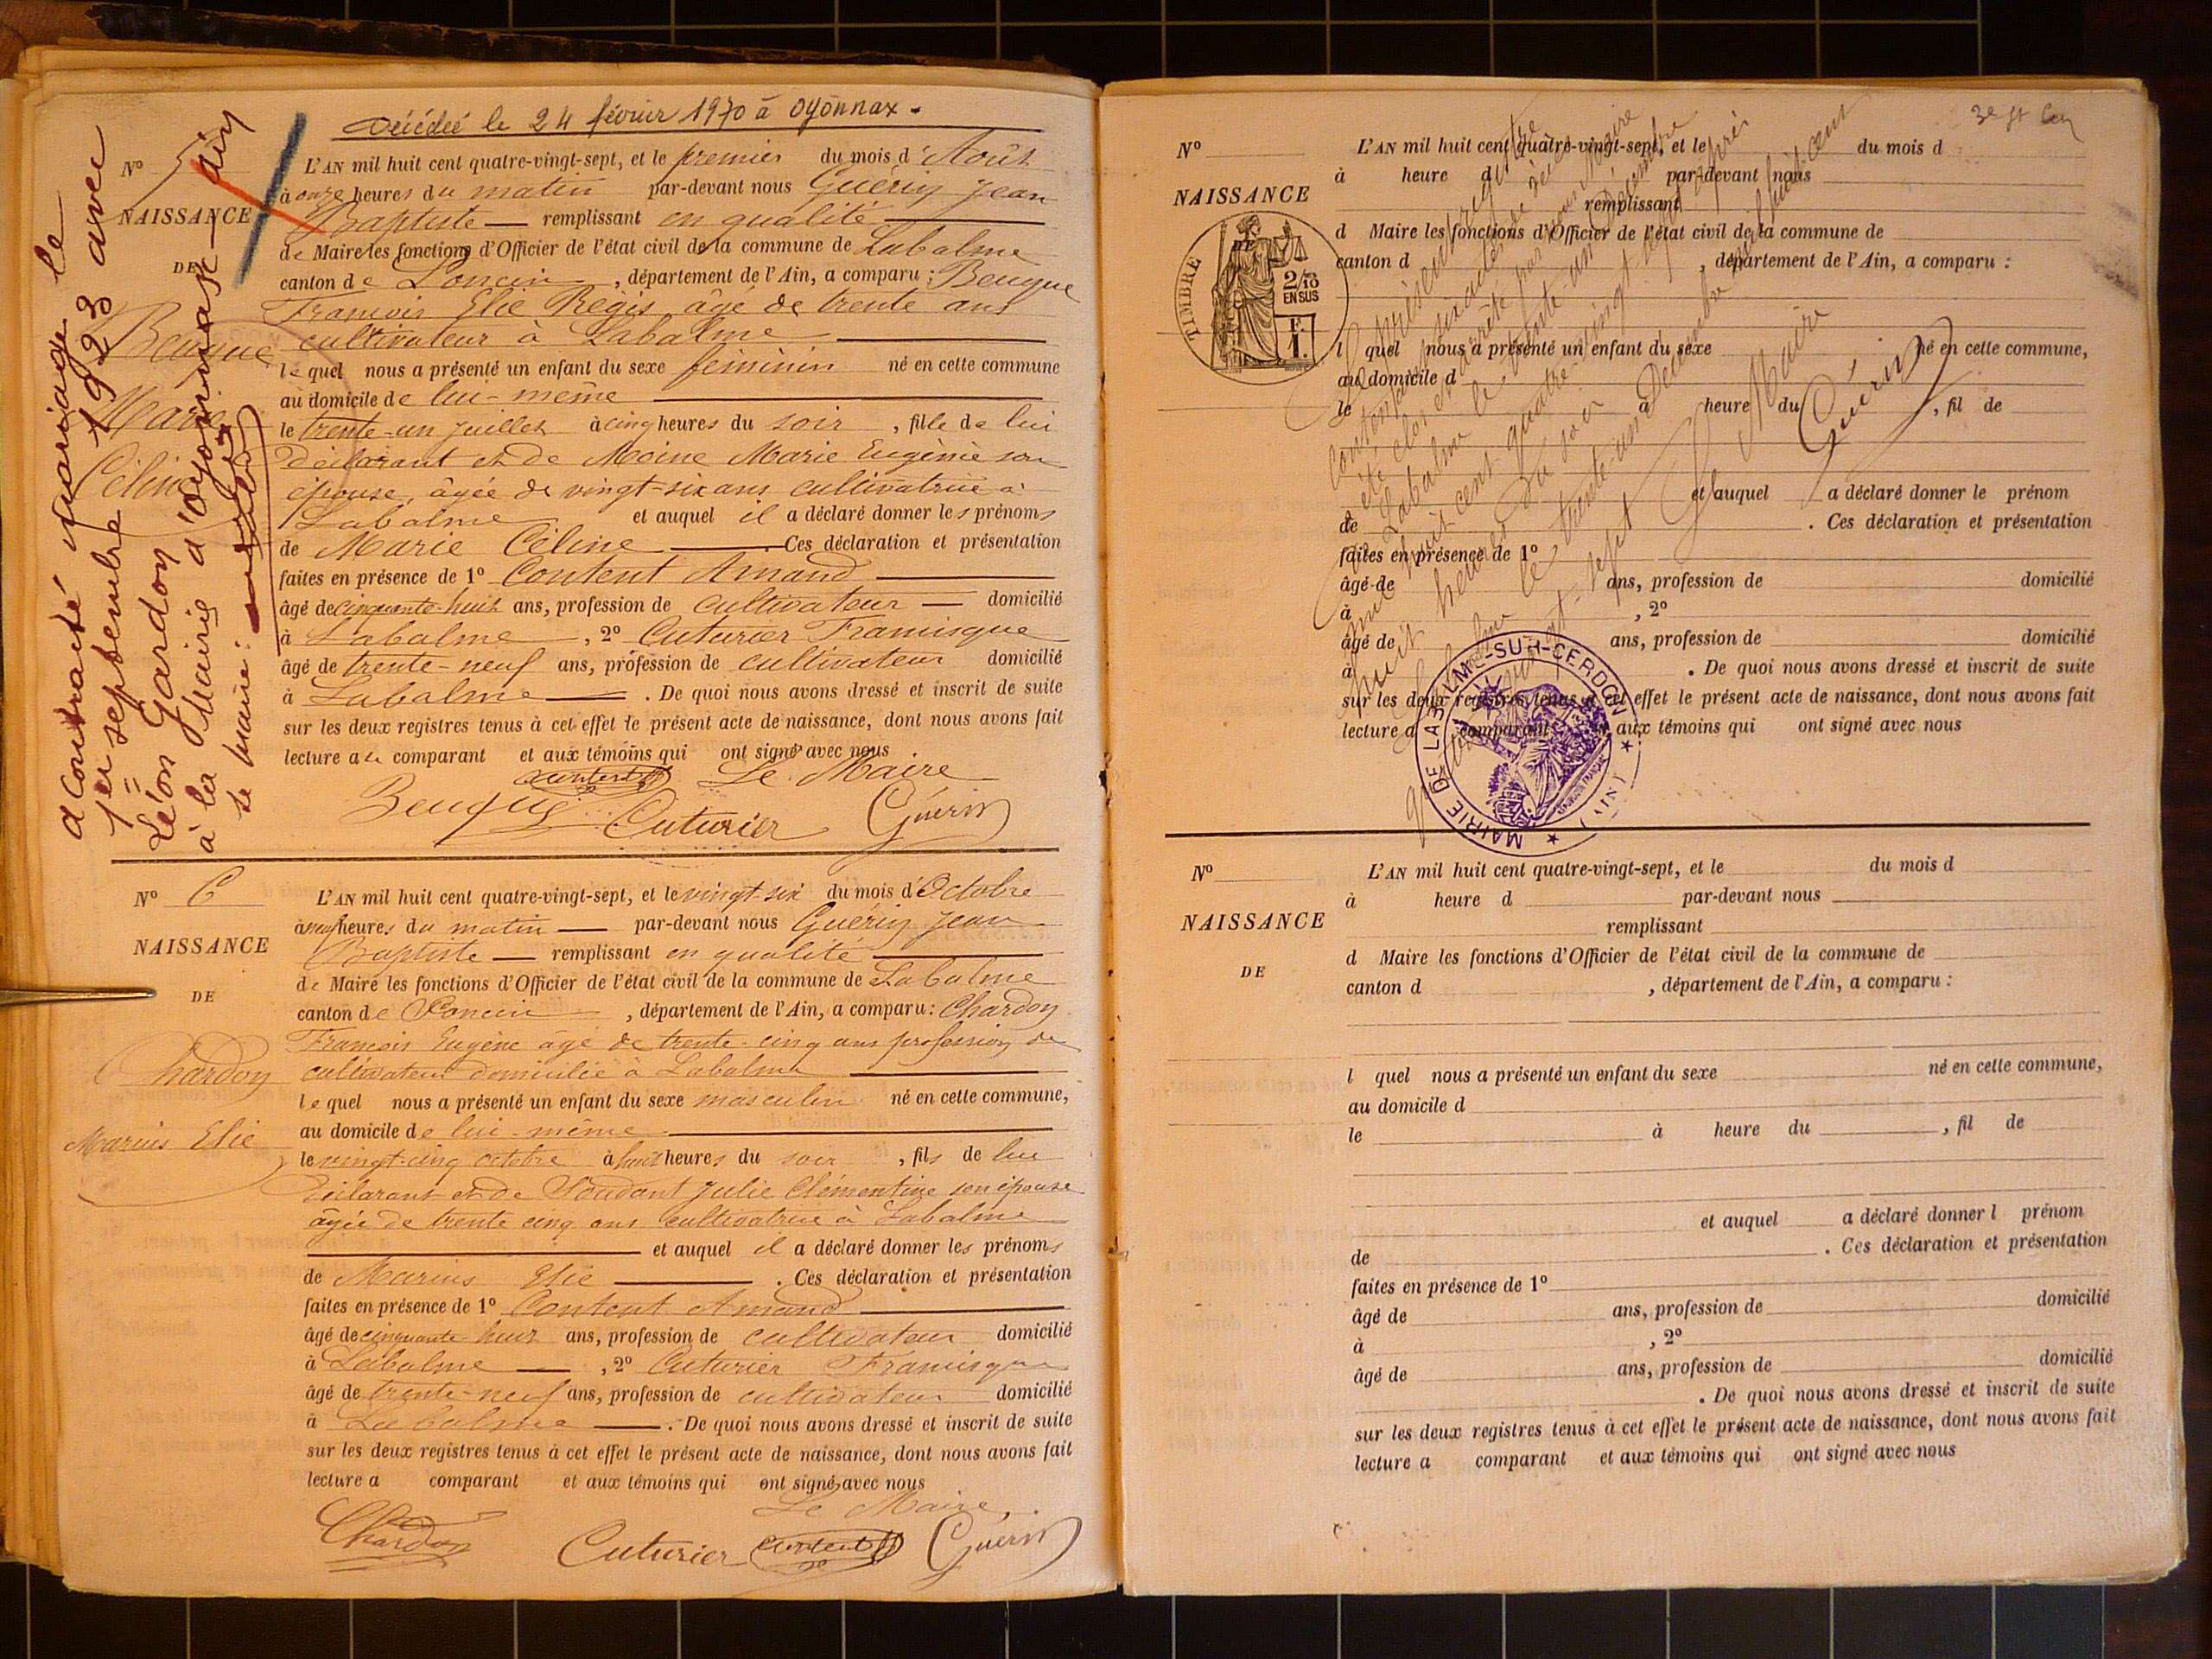 Décédée le 24 février 1970 à Oyonnax -
a contracté mariage le
1er septembre 1923 avec
Léon Jardon
à la Mairie d'Oyonnax - Ain
Le Maire:
N° 5
NAISSANCE
DE
Beuque
Marie
Céline
L'AN mil huit cent quatre-vingt-sept, et le premier du mois d'Août
à onze heures du matin par-devant nous Guérin Jean
Baptiste — remplissant en qualité
de Maire les fonctions d'Officier de l'état civil de la commune de Labalme
canton de Poncin, département de l'Ain, a comparu : Beuque
François Elie Régis âgé de trente ans
cultivateur à Labalme
le quel nous a présenté un enfant du sexe féminin né en cette commune
au domicile de lui-même
le trente-un juillet à cinq heures du soir, fille de lui
déclarant et de Moine Marie Eugénie son
épouse, âgée de vingt-six ans cultivatrice à
Labalme et auquel il a déclaré donner les prénoms
de Marie Céline — Ces déclaration et présentation
faites en présence de 1° Content Amand
âgé de cinquante-huit ans, profession de cultivateur — domicilié
à Labalme, 2° Cuturier Francisque
âgé de trente-neuf ans, profession de cultivateur domicilié
à Labalme — . De quoi nous avons dressé et inscrit de suite
sur les deux registres tenus à cet effet le présent acte de naissance, dont nous avons fait
lecture au comparant et aux témoins qui ont signé avec nous
Content Le Maire
Beuque Cuturier Guérin
N° 6
NAISSANCE
DE
Chardon
Marius Elie
L'AN mil huit cent quatre-vingt-sept, et le vingt-six du mois d'Octobre
à neuf heures du matin — par-devant nous Guérin Jean
Baptiste — remplissant en qualité
de Maire les fonctions d'Officier de l'état civil de la commune de Labalme
canton de Poncin, département de l'Ain, a comparu : Chardon
François Eugène âgé de trente-cinq ans profession de
cultivateur domicilié à Labalme
le quel nous a présenté un enfant du sexe masculin né en cette commune,
au domicile de lui-même
le vingt-cinq octobre à huit heures du soir, fils de lui
déclarant et de Soudant Julie Clémentine son épouse
âgée de trente cinq ans cultivatrice à Labalme
et auquel il a déclaré donner les prénoms
de Marius Elie — . Ces déclaration et présentation
faites en présence de 1° Content Amand
âgé de cinquante huit ans, profession de cultivateur domicilié
à Labalme —, 2° Cuturier Francisque
âgé de trente-neuf ans, profession de cultivateur domicilié
à Labalme — . De quoi nous avons dressé et inscrit de suite
sur les deux registres tenus à cet effet le présent acte de naissance, dont nous avons fait
lecture a comparant et aux témoins qui ont signé avec nous
Le Maire,
Chardon Cuturier Content Guérin
N°
NAISSANCE
DE
TIMBRE
2/10
EN SUS
F.
1.
L'AN mil huit cent quatre-vingt-sept, et le du mois d
à heure d par-devant nous
remplissant
d Maire les fonctions d'Officier de l'état civil de la commune de
canton d , département de l'Ain, a comparu :
l quel nous a présenté un enfant du sexe né en cette commune,
au domicile d
le à heure du , fil de
et auquel a déclaré donner le prénom
de . Ces déclaration et présentation
faites en présence de 1°
âgé de ans, profession de domicilié
à , 2°
âgé de ans, profession de domicilié
à . De quoi nous avons dressé et inscrit de suite
sur les deux registres tenus à cet effet le présent acte de naissance, dont nous avons fait
lecture a comparant et aux témoins qui ont signé avec nous
Le présent registre
contenant six actes de
été clos et arrêté par nous Maire
de Labalme le trente-un Décembre
mil huit cent quatre-vingt-sept
huit heures du soir
Labalme le trente-un Décembre mil huit cent
quatre-vingt-sept
Le Maire
Guérin
MAIRIE DE LABALME-SUR-CERDON
(AIN)
N°
NAISSANCE
DE
L'AN mil huit cent quatre-vingt-sept, et le du mois d
à heure d par-devant nous
remplissant
d Maire les fonctions d'Officier de l'état civil de la commune de
canton d , département de l'Ain, a comparu :
l quel nous a présenté un enfant du sexe né en cette commune,
au domicile d
le à heure du , fil de
et auquel a déclaré donner l prénom
de . Ces déclaration et présentation
faites en présence de 1°
âgé de ans, profession de domicilié
à , 2°
âgé de ans, profession de domicilié
. De quoi nous avons dressé et inscrit de suite
sur les deux registres tenus à cet effet le présent acte de naissance, dont nous avons fait
lecture a comparant et aux témoins qui ont signé avec nous